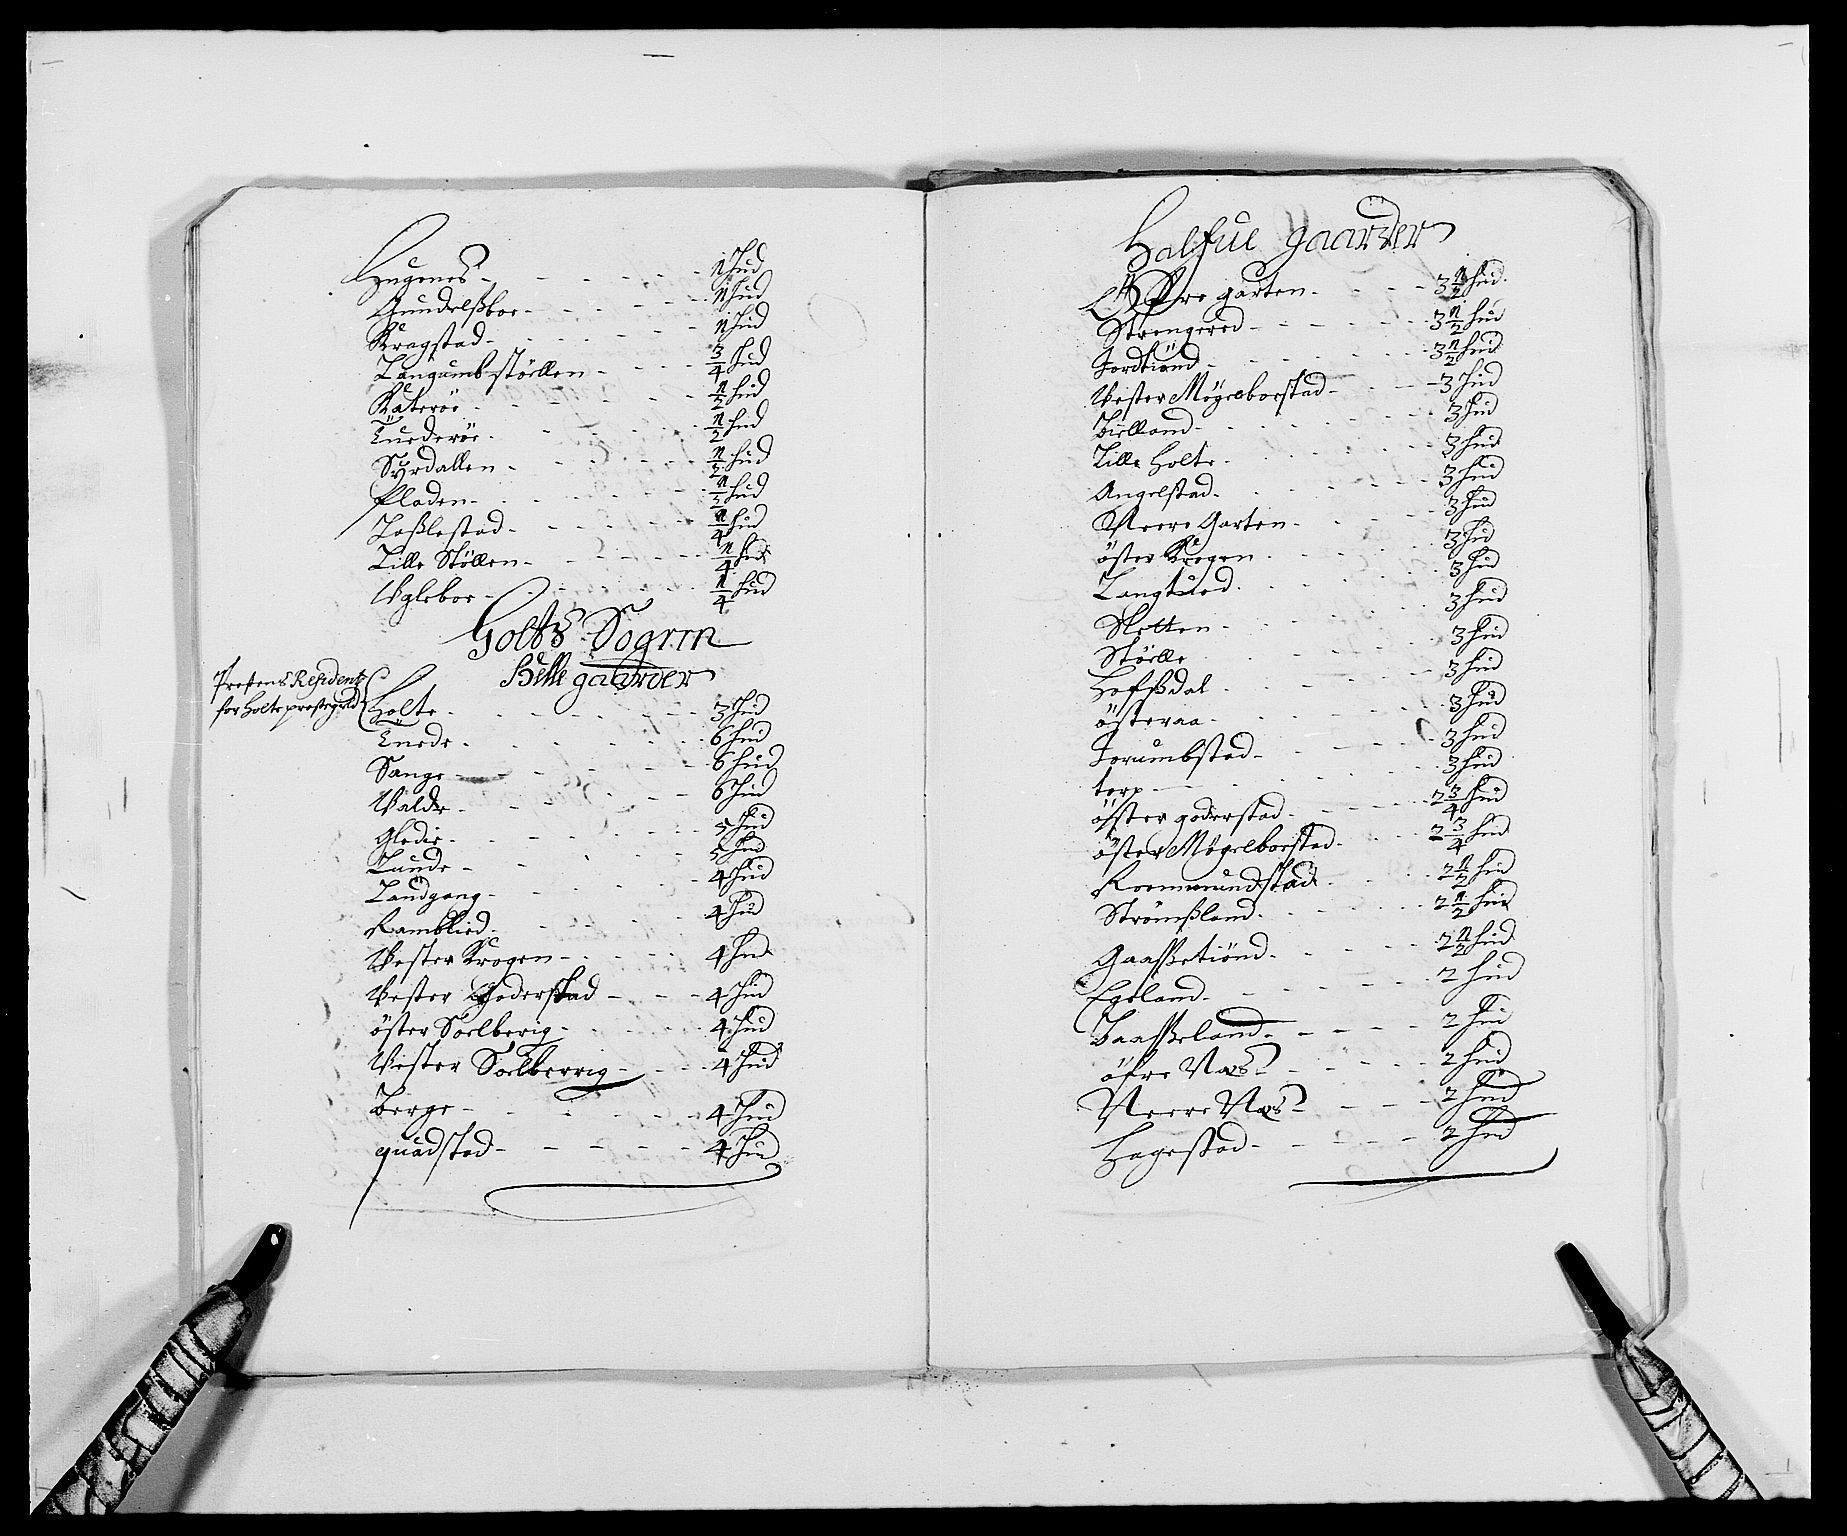 Hugenes - 1 Hud
Gundelsboe - 1 Hud
Kragstad - 1 Hud
Langumbstöellen - 3/4 Hud
Katerøe - 1/2 Hud
Lurderøe - 1/2 Hud
Syrdallen - 1/2 Hud
Pladen - 1/2 Hud
Toßlestad - 1/4 Hud
Lille Stöllen - 1/4 Hud
Ugleboe - 1/4 Hud
Holtz Sogen
Helle gaarder
Prestens Residentz
for Holte prestegield
Holte - 3 Hud
Lunde - 6 Hud
Sange - 6 Hud
Walde - 6 Hud
Glodie - 5 Hud
Lunde - 5 Hud
Landgang - 4 Hud
Ramblied - 4 Hud
Vester Krogen - 4 Hud
Vester Goderstad - 4 Hud
öster Soelberig - 4 Hud
Vester Soelberrig - 4 Hud
Berge - 4 Hud
quadstad - 4 Hud
Halfue gaarder
Öfre garten - 3 1/2 hud
Strengered - 3 1/2 hud
Jordtiönd - 3 1/2 hud
Vester Møgelboestad - 3 Hud
Bielland - 3 hud
Lille Holte - 3 hud
Angelstad - 3 hud
Neere Garten - 3 hud
öster Krogen - 3 hud
Langtued - 3 hud
Sletten - 3 hud
Stöelle - 3 hud
Hofßdal - 3 hud
österaa - 3 hud
Jorumbstad - 3 hud
torp - 3 hud
öster goderstad - 2 3/4 hud
öster Møgelboestad - 2 3/4 hud
Rommundstad - 2 1/2 hud
Strömßland - 2 1/2 hud
Gaaßetiönd - 2 1/2 hud
Egeland - 2 hud
Baaßeland - 2 hud
öfre Næs - 2 hud
Neere Næs - 2 hud
Hagestad - 2 hud